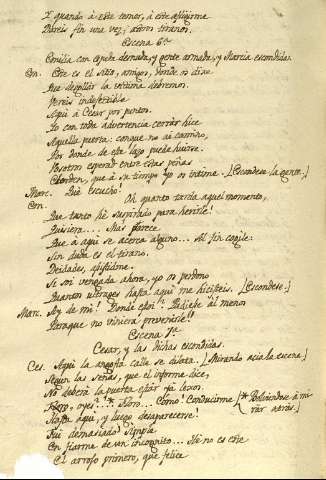 Y quando à este temor, à este afligirme
Dareis fin una vez, astros tiranos.
Escena 6ª
Emilia con espada desnuda, y gente armada, y Marcia escondida.
Em. Este es el sitio, amigos, donde os dixe
Que la victima debemos.
Vereis indefectible
Aqui à Cesar por puntos.
Yo con toda advertencia cerrar hice
Aquella puerta: conque no ai camino,
Por donde de este lazo pueda huirse.
Vosotros esperad entre estas peñas
La orden, que à su tiempo yo os intime. [Escondese la gente.]
Marc. Què escucho!
Em. Oh quanto tarda aquel momento,
Que tanto hè suspirado para herirle!
Quisiera.... Mas parece
Que à aqui se acerca alguno... Al fin
Sin duda es el tirano.
Deidades, asistidme.
Si soi vengada ahora, yo os perdono
Quantos ultrages hasta aqui me hicisteis. [Escondese.]
Marc. Ay de mi! Donde estoi? Pudiese al menos
Paraque no viniera prevenirle!
Escena 7ª
Cesar, y las dichas escondidas.
Ces. Aqui la angosta calle se dilata. [Mirando acia la escena]
Segun las señas, que el informe dice,
No deberà la puerta estar ya lexos.
Floro, oyes?... Floro... Como! Conducirme [* Bolviendose à mi-
Hasta aqui, y luego desaparecerse! rar atràs.]
Fui demasiado simple
En fiarme de un incognito... Mas no es este
El arrojo primero, que felice